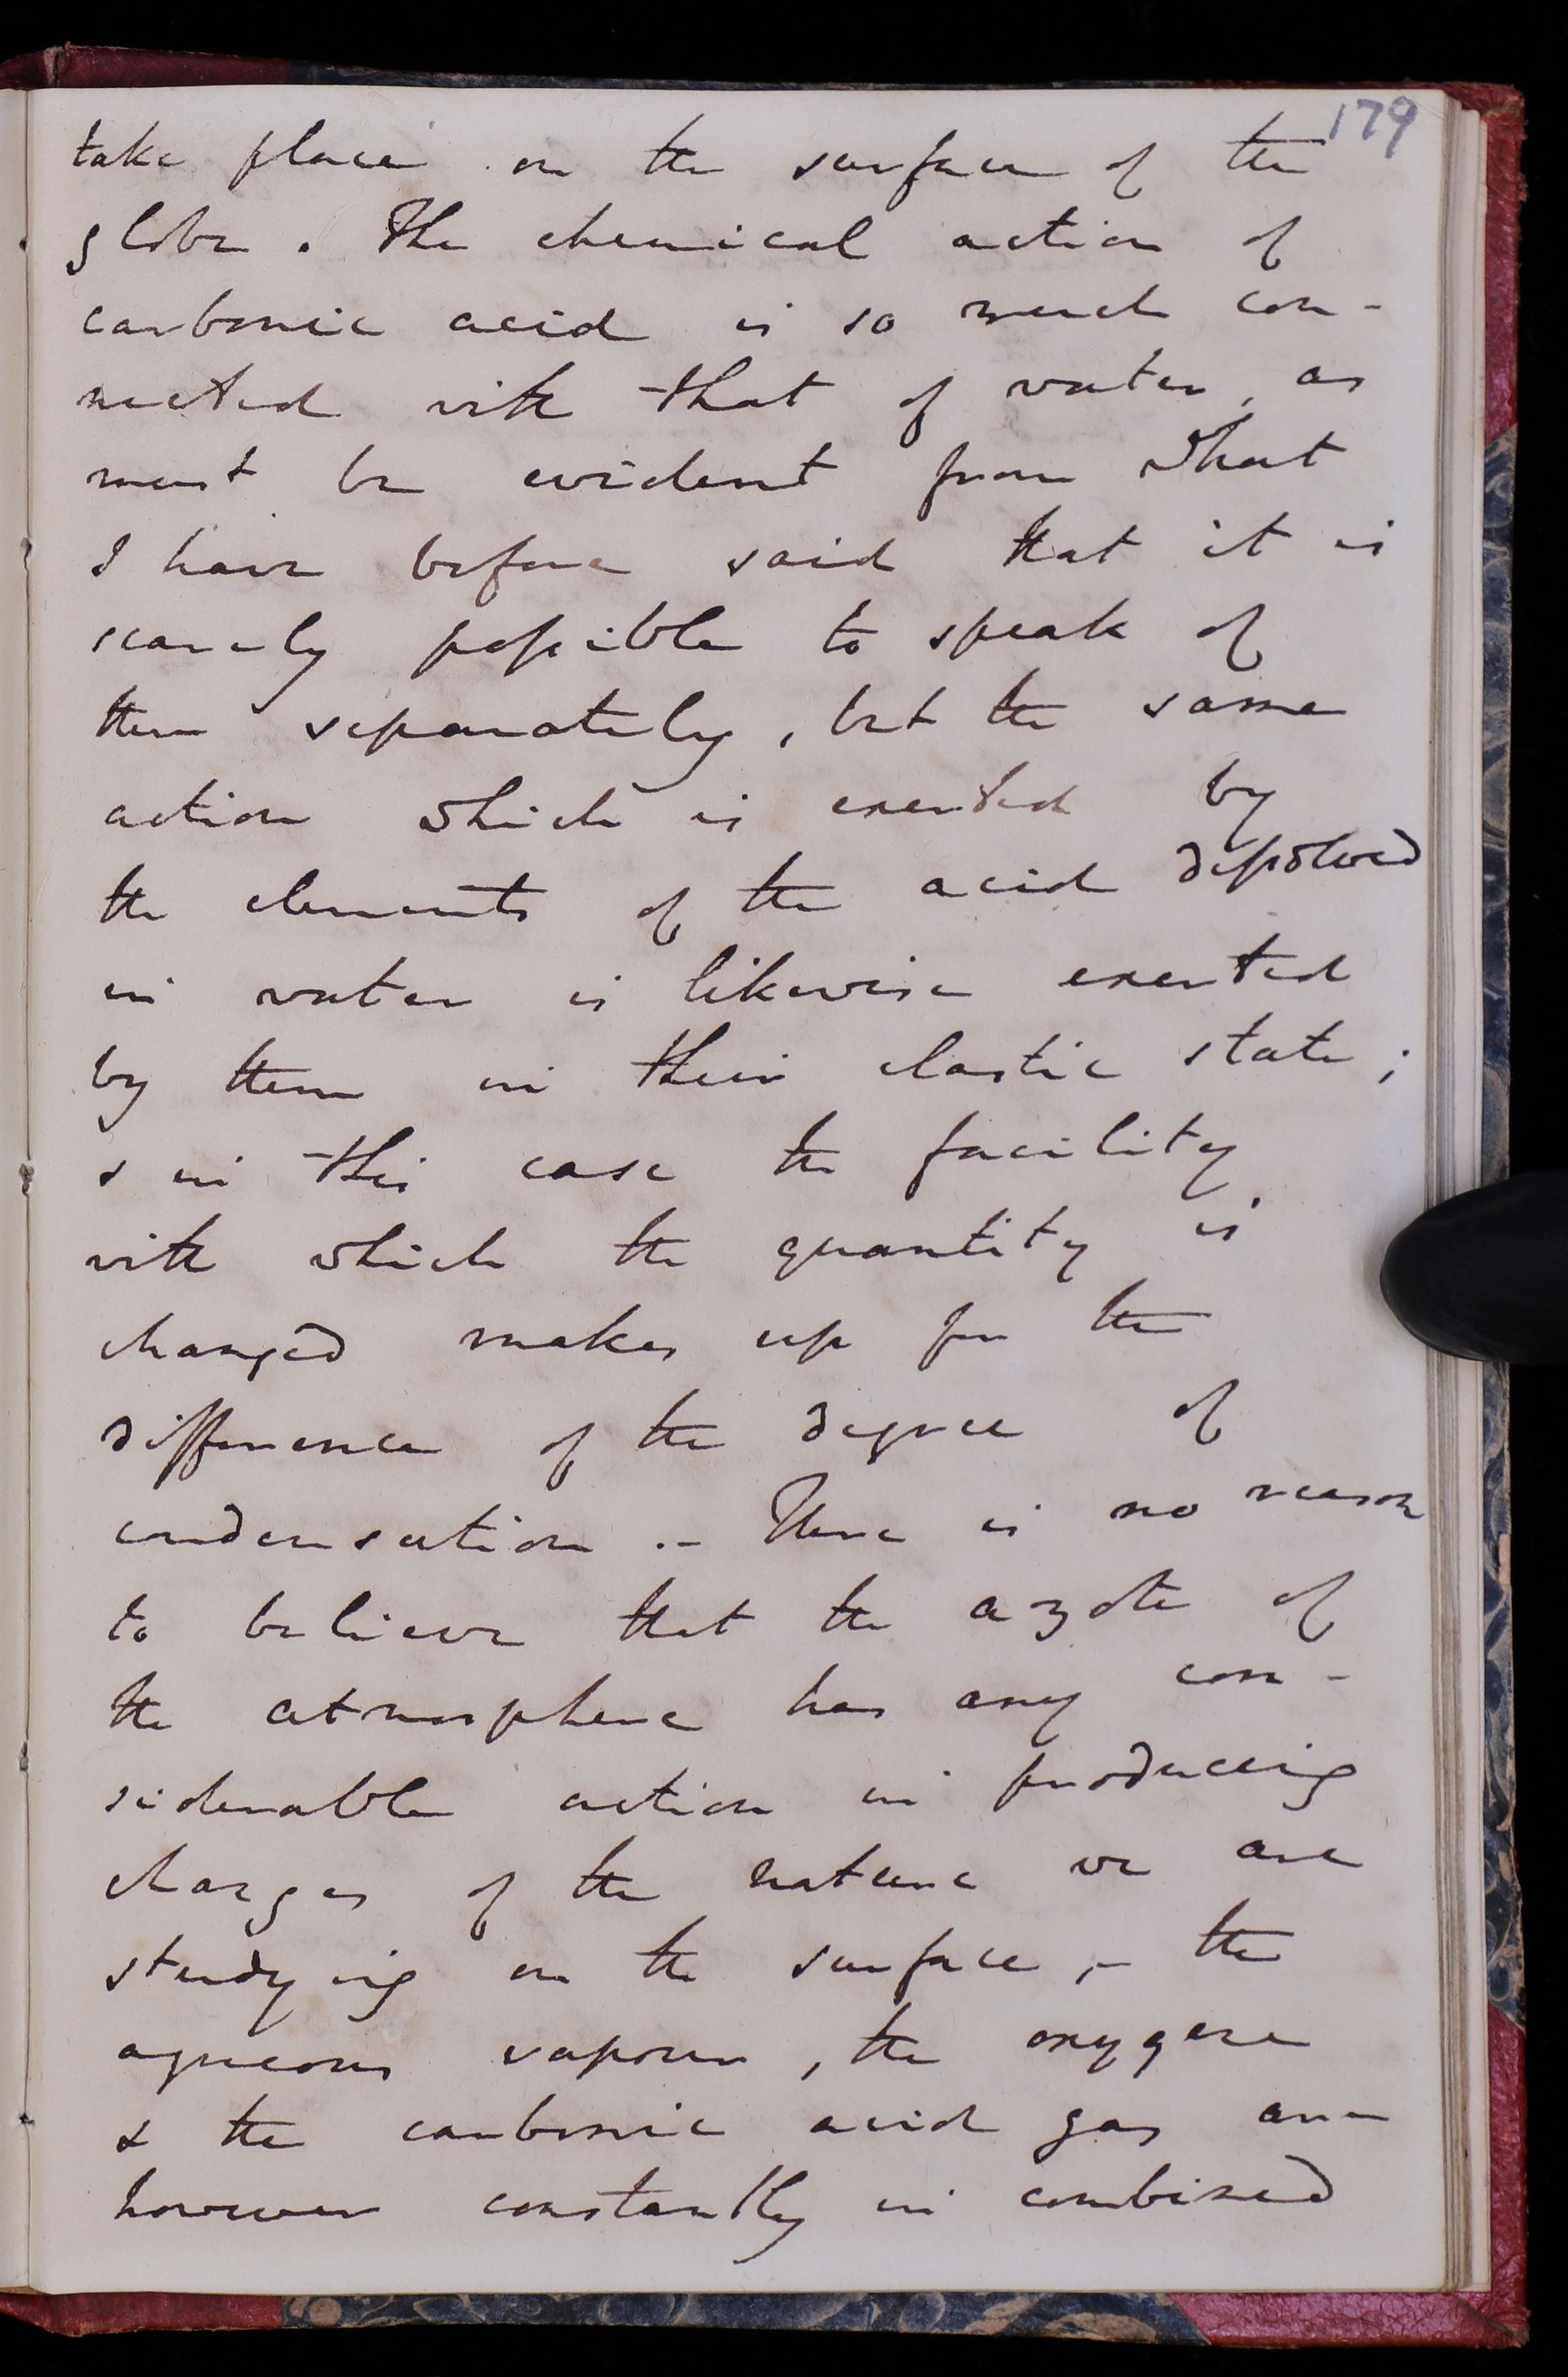 179
take place on the surface of the
globe. The chemical action of
carbonic acid is so much con-
nected with that of water, as
must be evident from what
I have before said that it is
scarcely possible to speak of
them separately, but the same
action which is exerted by
the elements of the acid dissolved
in water is likewise exerted
by them in their elastic state;
& in this case the facility
with which the quantity is
changed makes up for the
difference of the degree of
condensation .- There is no reason
to believe that the azote of
the atmosphere has any con-
siderable action in producing
changes of the nature we are
studying on the surface, - the
aqueous vapour, the oxygene
& the carbonic acid gas are
however constantly in combined